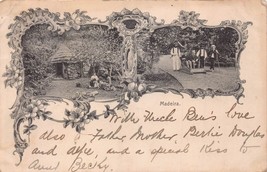 Madeira.
With Uncle Ben's love
also Father, Mother, Bertie Douglas
and Alfie, and a special kiss to
Aunt Becky.